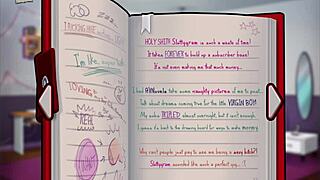 FUCKING HATE
I'm like,
LOVING
REAL
HOLY SHIT! Sluttygram is such a waste of time!
It takes FOREVER to build up a subscriber base!
It's not even making me that much money...
I had take some naughty pictures of me to post.
Talk about dreams coming true for the little VIRGIN BOY!
My subs TRIPLED almost overnight, but it isn't enough.
I guess it's back to the drawing board for ways to make money.
Why can't people just pay to see me being a sexy bitch?!
Sluttygram sounded like such a perfect gig... :(